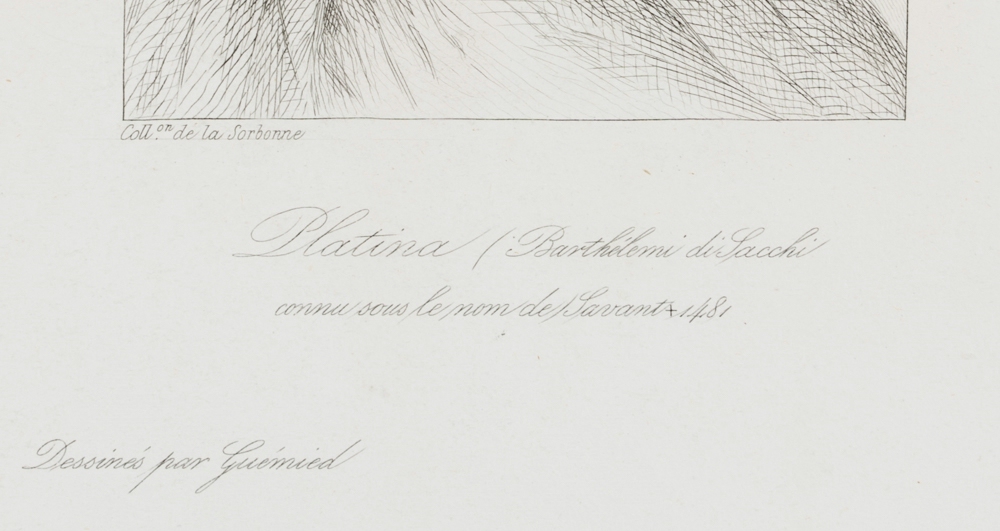 Coll.on de la Sorbonne
Platina (Barthélemi di Sacchi
connu sous le nom de Savant + 1481
Dessinés par Guémied